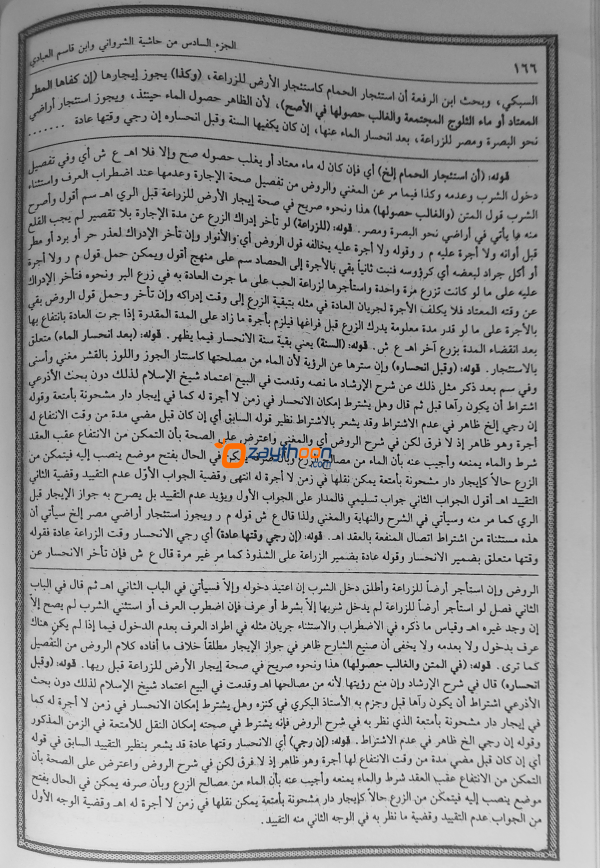 ١٦٦
الجزء السادس من حاشية الشرواني وابن قاسم العبادي
السبكي، وبحث ابن الرفعة أن استئجار الحمام كاستئجار الأرض للزراعة، (وكذا) يجوز إيجارها (إن كفاها المطر
المعتاد أو ماء الثلوج المجتمعة والغالب حصولها في الأصح)، لأن الظاهر حصول الماء حينئذ، ويجوز استئجار أراضي
نحو البصرة ومصر للزراعة، بعد انحسار الماء عنها، إن كان يكفيها السنة وقبل انحساره إن رجي وقتها عادة .......
قوله: (أن استئجار الحمام إلخ) أي فإن كان له ماء معتاد أو يغلب حصوله صح وإلا فلا اهـ ع ش أي وفي تفصيل
دخول الشرب وعدمه وكذا فيما مر عن المغني والروض من تفصيل صحة الإجارة وعدمها عند اضطراب العرف واستثناء
الشرب قول المتن (والغالب حصولها) هذا ونحوه صريح في صحة إيجار الأرض للزراعة قبل الري اهـ سم أقول وأصرح
منه ما يأتي في أراضي نحو البصرة ومصر. قوله: (للزراعة) لو تأخر إدراك الزرع عن مدة الإجارة بلا تقصير لم يجب القلع
قبل أوانه ولا أجرة عليه م ر وقوله ولا أجرة عليه يخالفه قول الروض أي والأنوار وإن تأخر الإدراك لعذر حر أو برد أو مطر
أو أكل جراد لبعضه أي كرؤوسه فنبت ثانياً بقي بالأجرة إلى الحصاد سم على منهج أقول ويمكن حمل قول م ر ولا أجرة
عليه على ما لو كانت تزرع مرة واحدة واستأجرها لزراعة الحب على ما جرت العادة به في زرع البر ونحوه فتأخر الإدراك
عن وقته المعتاد فلا يكلف الأجرة لجريان العادة في مثله بتبقية الزرع إلى وقت إدراكه وإن تأخر وحمل قول الروض بقي
بالأجرة على ما لو قدر مدة معلومة يدرك الزرع قبل فراغها فيلزم بأجرة ما زاد على المدة المقدرة إذا جرت العادة بانتفاع بها
بعد انقضاء المدة بزرع آخر اهـ ع ش. قوله: (السنة) يعني بقية سنة الانحسار فيما يظهر. قوله: (بعد انحسار الماء) متعلق
بالاستئجار. قوله: (وقبل انحساره) وإن سترها عن الرؤية لأن الماء من مصلحتها كاستتار الجوز واللوز بالقشر مغني وأسنى
وفي سم بعد ذكر مثل ذلك عن شرح الإرشاد ما نصه وقدمت في البيع اعتماد شيخ الإسلام لذلك دون بحث الأذرعي
اشتراط أن يكون رآها قبل ثم قال وهل يشترط إمكان الانحسار في زمن لا أجرة له كما في إيجار دار مشحونة بأمتعة وقوله
إن رجي إلخ ظاهر في عدم الاشتراط وقد يشعر بالاشتراط نظير قوله السابق أي إن كان قبل مضي مدة من وقت الانتفاع له
أجرة وهو ظاهر إذ لا فرق لكن في شرح الروض أي والمغني واعترض على الصحة بأن التمكن من الانتفاع عقب العقد
شرط والماء يمنعه وأجيب عنه بأن الماء من مصالح الزرع وبأن صرفه يمكن في الحال بفتح موضع ينصب إليه فيتمكن من
الزرع حالاً كإيجار دار مشحونة بأمتعة يمكن نقلها في زمن لا أجرة له انتهى وقضية الجواب الأول عدم التقييد وقضية الثاني
التقييد اهـ أقول الجواب الثاني جواب تسليمي فالمدار على الجواب الأول ويؤيد عدم التقييد بل يصرح به جواز الإيجار قبل
الري كما مر منه وسيأتي في الشرح والنهاية والمغني ولذا قال ع ش قوله م ر ويجوز استئجار أراضي مصر إلخ سيأتي أن
هذه مستثناة من اشتراط اتصال المنفعة بالعقد اهـ. قوله: (إن رجي وقتها عادة) أي رجي الانحسار وقت الزراعة عادة فقوله
وقتها متعلق بضمير الانحسار وقوله عادة بضمير الزراعة على الشذوذ كما مر غير مرة قال ع ش فإن تأخر الانحسار عن
الروض وإن استأجر أرضاً للزراعة وأطلق دخل الشرب إن اعتيد دخوله وإلا فسيأتي في الباب الثاني اهـ ثم قال في الباب
الثاني فصل لو استأجر أرضاً للزراعة لم يدخل شربها إلا بشرط أو عرف فإن اضطرب العرف أو استثني الشرب لم يصح إلا
إن وجد غيره اهـ وقياس ما ذكره في الاضطراب والاستثناء جريان مثله في اطراد العرف بعدم الدخول فيما إذا لم يكن هناك
عرف بدخول ولا بعدمه ولا يخفى أن صنيع الشارح ظاهر في جواز الإيجار مطلقاً خلاف ما أفاده كلام الروض من التفصيل
كما ترى. قوله: (في المتن والغالب حصولها) هذا ونحوه صريح في صحة إيجار الأرض للزراعة قبل ريها. قوله: (وقبل
انحساره) قال في شرح الإرشاد وإن منع رؤيتها لأنه من مصالحها اهـ وقدمت في البيع اعتماد شيخ الإسلام لذلك دون بحث
الأذرعي اشتراط أن يكون رآها قبل وجزم به الأستاذ البكري في كنزه وهل يشترط إمكان الانحسار في زمن لا أجرة له كما
في إيجار دار مشحونة بأمتعة الذي نظر به في شرح الروض فإنه يشترط في صحته إمكان النقل للأمتعة في الزمن المذكور
وقوله إن رجي الخ ظاهر في عدم الاشتراط. قوله: (إن رجي) أي الانحسار وقتها عادة قد يشعر بنظير التقييد السابق في قوله
أي إن كان قبل مضي مدة من وقت الانتفاع لها أجرة وهو ظاهر إذ لا فرق لكن في شرح الروض واعترض على الصحة بأن
التمكن من الانتفاع عقب العقد شرط والماء يمنعه وأجيب عنه بأن الماء من مصالح الزرع وبأن صرفه يمكن في الحال بفتح
موضع ينصب إليه فيتمكن من الزرع حالاً كإيجار دار مشحونة بأمتعة يمكن نقلها في زمن لا أجرة له اهـ وقضية الوجه الأول
من الجواب عدم التقييد وقضية ما نظر به في الوجه الثاني منه التقييد.
zaythoon
.com